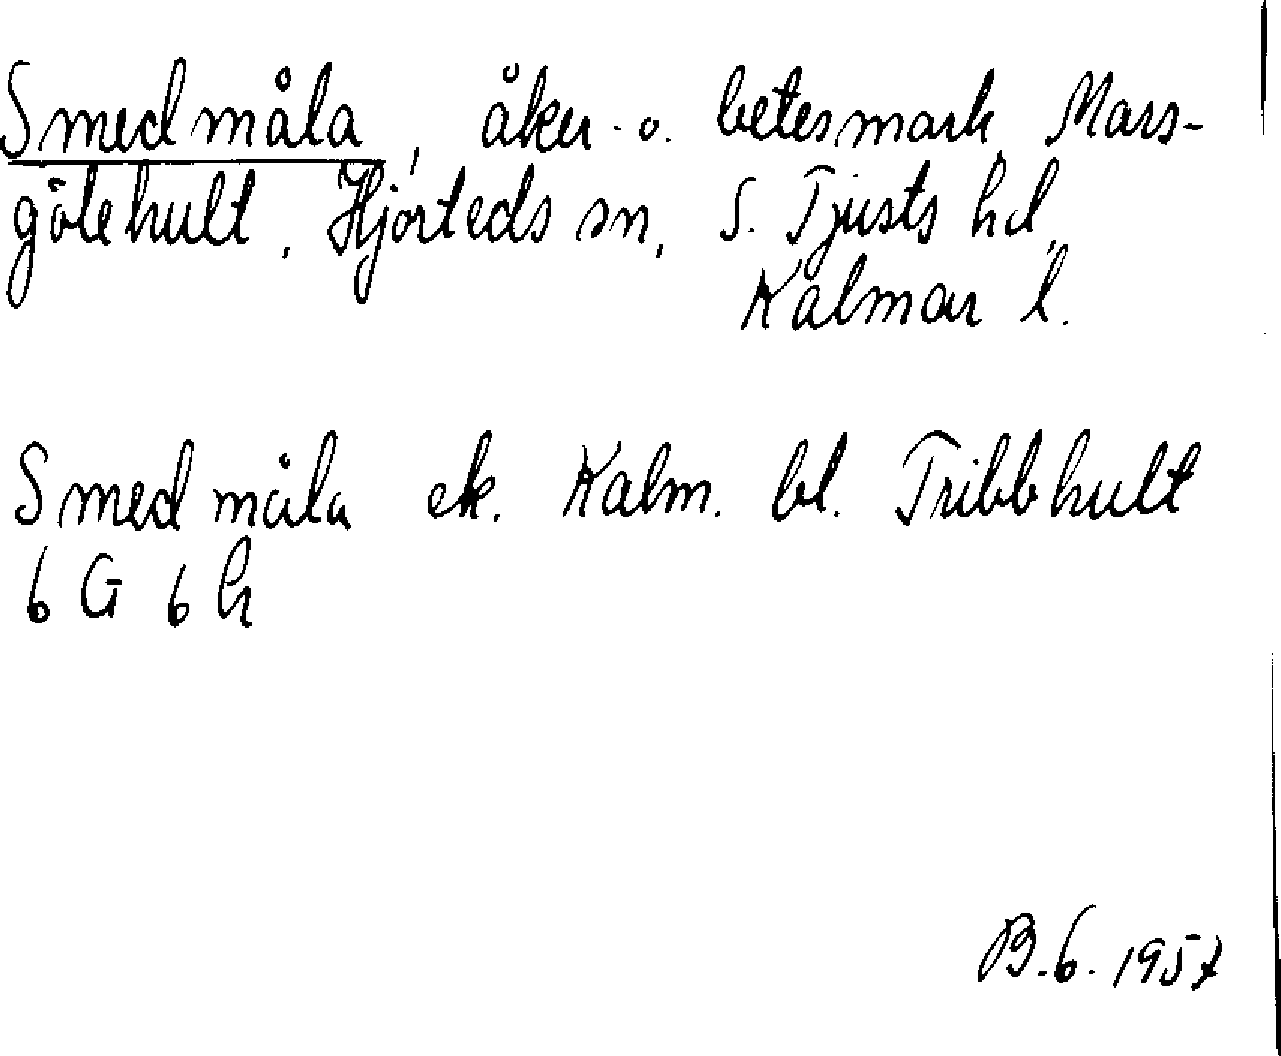 Smedmåla, åker- o. betesmark, Mars-
götehult, Hjorteds sn, S. Tjusts hd,
Kalmar l.
Smedmåla ek. Kalm. bl. Tribbhult
6 G 6 h
B.G. 1957